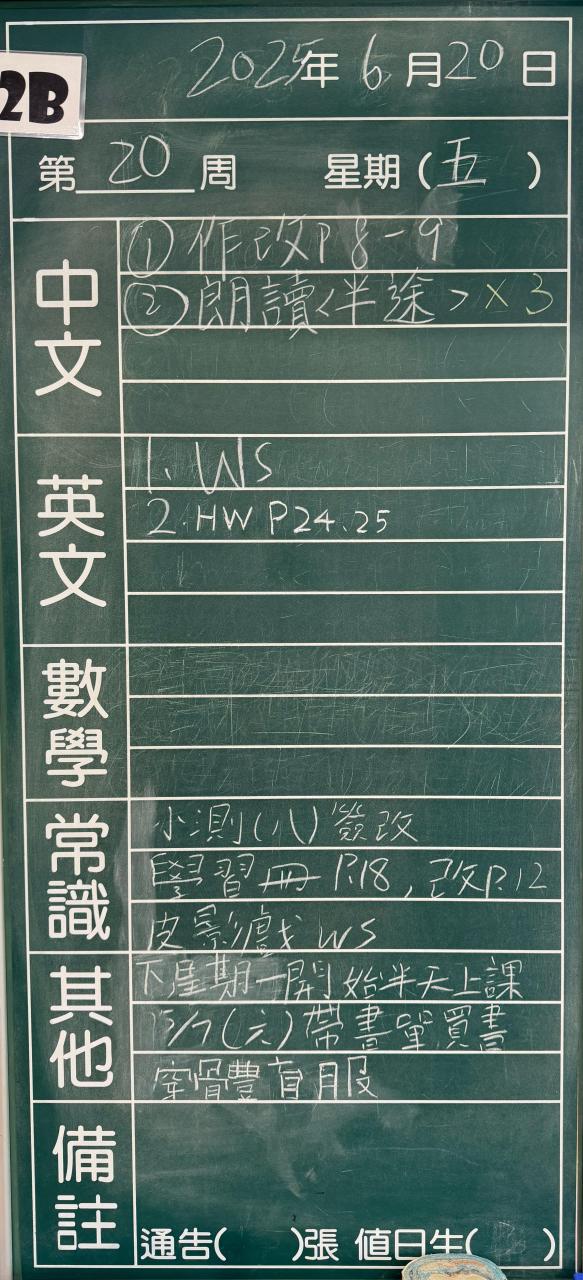 2B
2025年6月20日
第20周 星期(五)
中文
①作改P8-9
②朗讀<半途>×3
英文
1. WS
2. HW P24.25
數學
常識
小測(八)簽改
學習冊P.18,改P.12
皮影戲WS
其他
下星期一開始半天上課
5/7(六)帶書單買書
穿體育服
備註
通告( )張 值日生( )